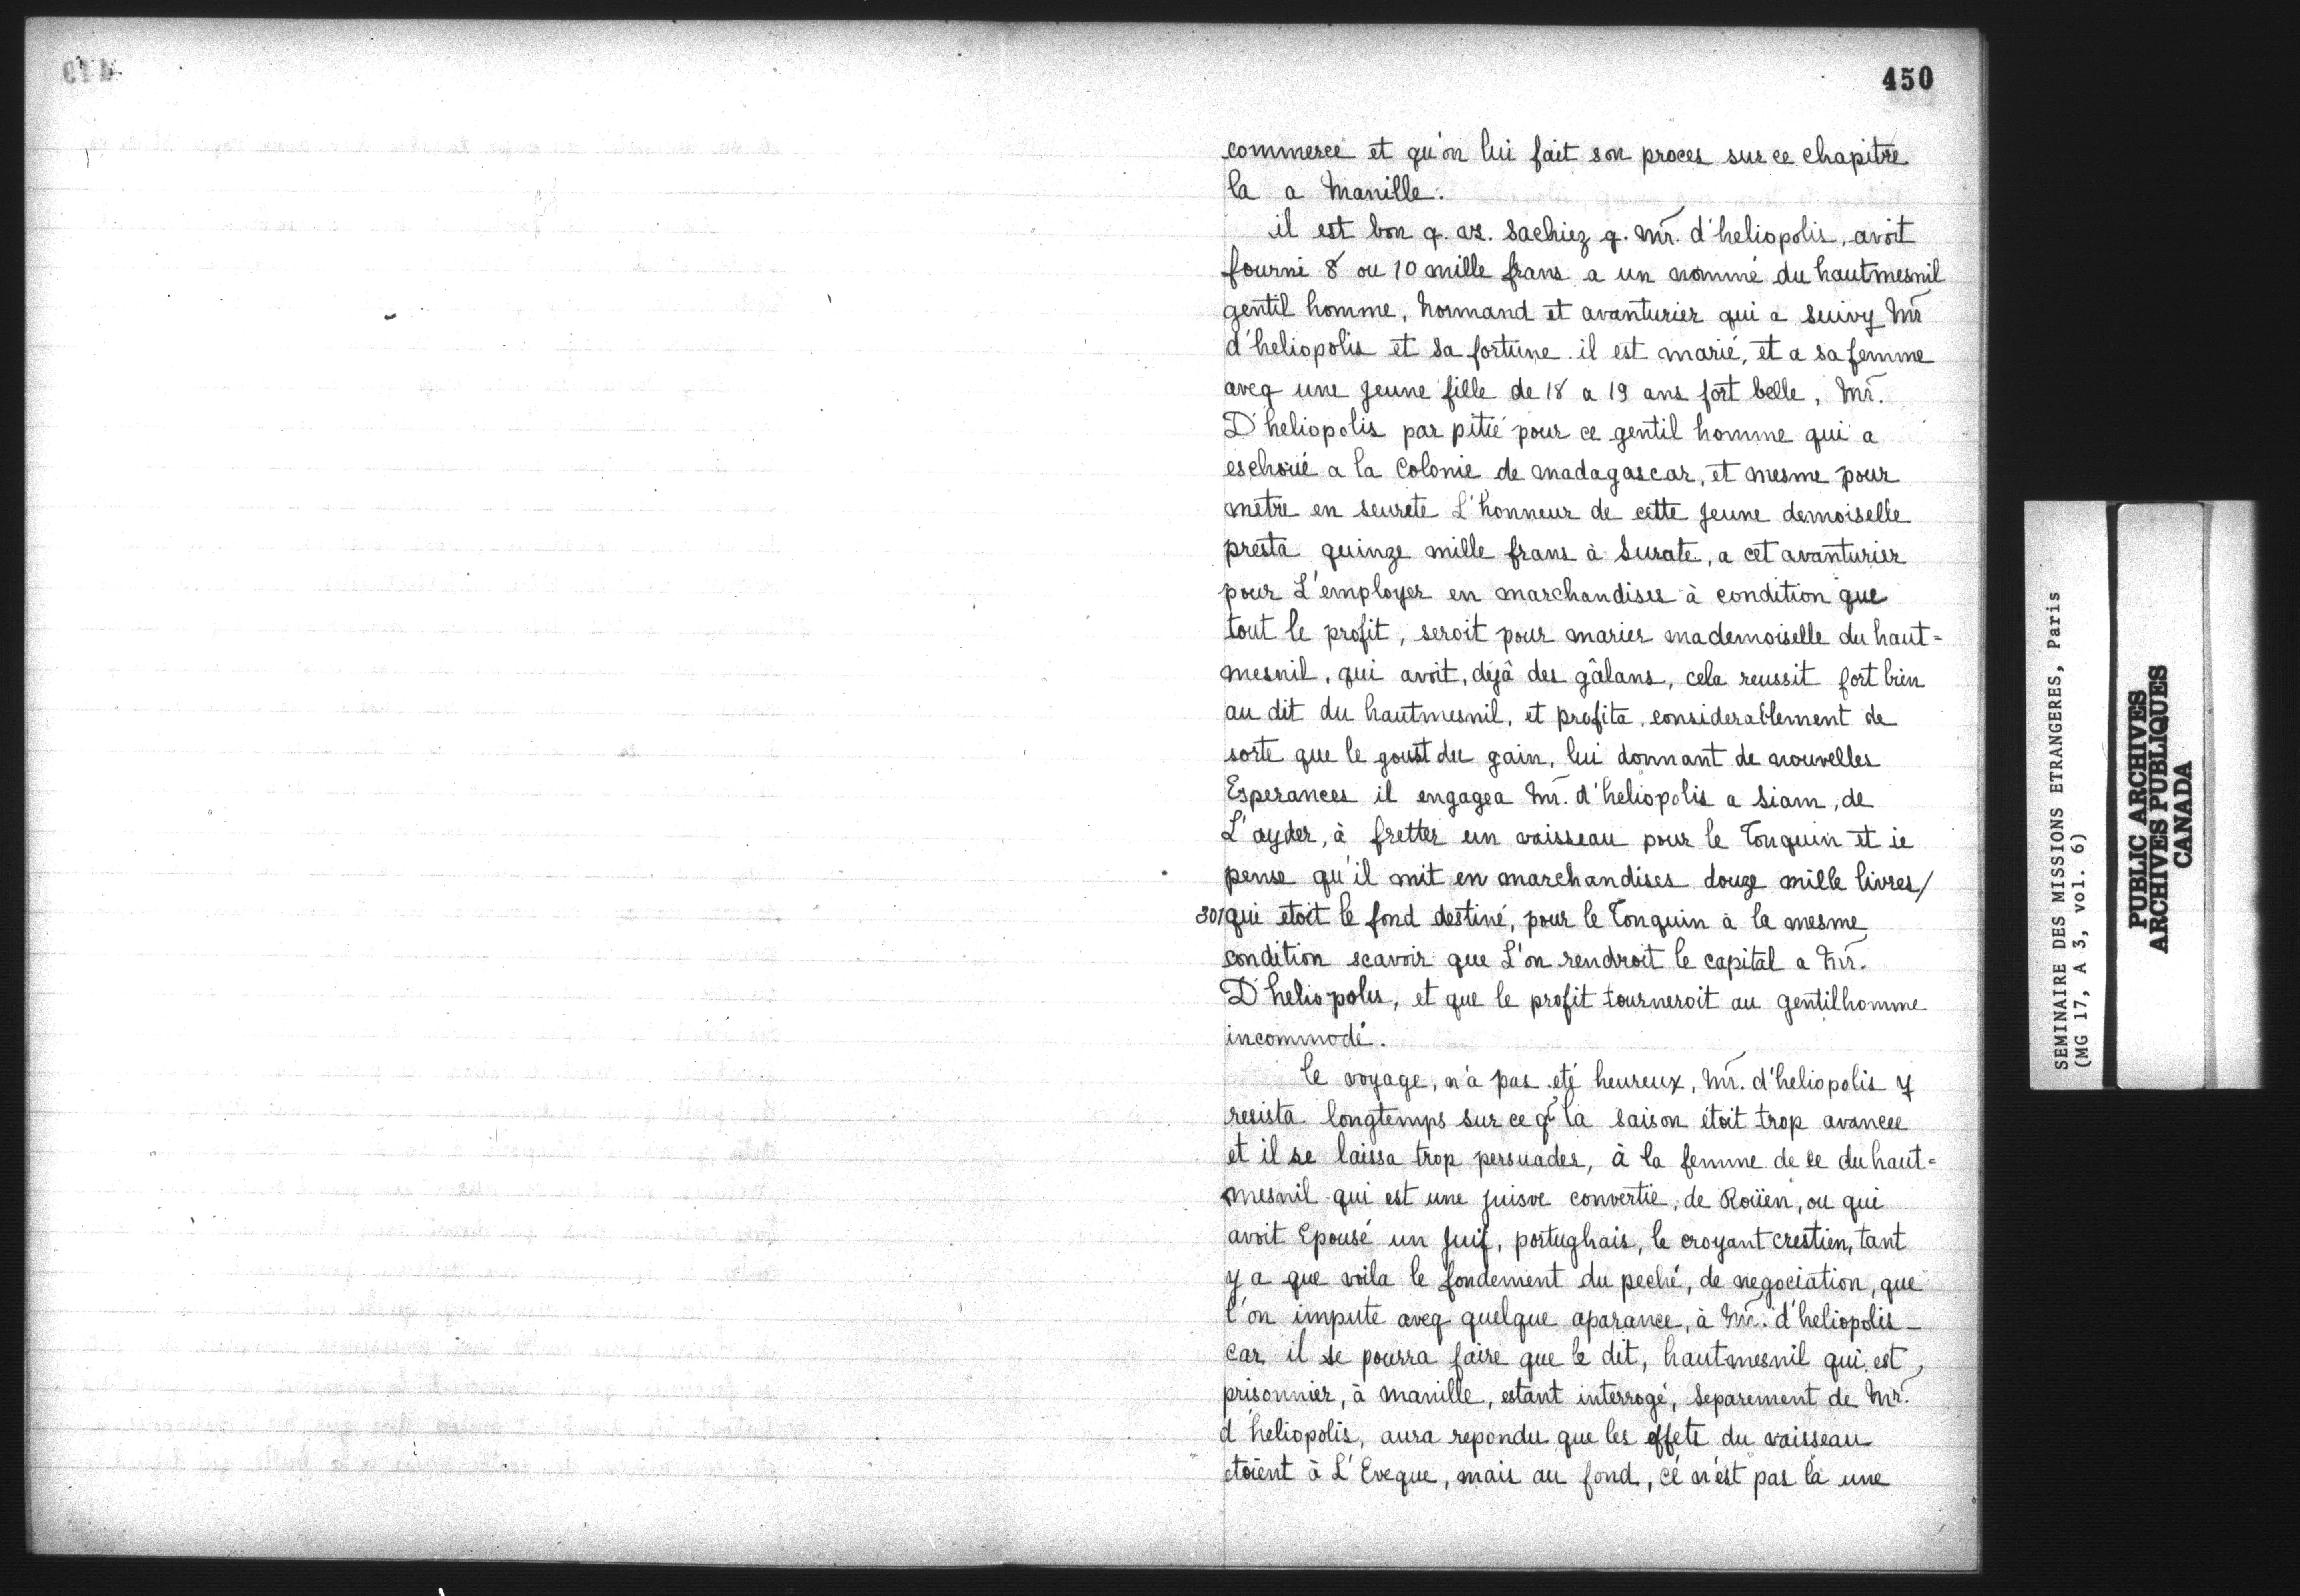 450
commerce et qu'on lui fait son proces sur ce chapitre
la a Manille.
il est bon q. vs. sachiez q. Mr. d'heliopolis, avoit
fourni 8 ou 10 mille frans a un nommé du hautmesnil
gentil homme, Normand et avanturier qui a suivy Mr
d'heliopolis et sa fortune. il est marié, et a sa femme
aveq une jeune fille de 18 a 19 ans fort belle, Mr.
D'heliopolis par pitié pour ce gentil homme qui a
eschoué a la Colonie de madagascar, et mesme pour
metre en seurete L'honneur de cette jeune demoiselle
presta quinze mille frans à Surate, a cet avanturier
pour L'employer en marchandises à condition que
tout le profit, seroit pour marier mademoiselle du haut=
mesnil, qui avoit, déjâ des gâlans, cela reussit fort bien
au dit du hautmesnil, et profita, considerablement de
sorte que le goust du gain, lui donnant de nouvelles
Esperances il engagea Mr. d'heliopolis a Siam, de
L'ayder, à fretter un vaisseau pour le Tonquin et ie
pense qu'il mit en marchandises douze mille livres/
301 qui etoit le fond destiné, pour le Tonquin à la mesme
condition scavoir que L'on rendroit le capital a Mr.
D'heliopolis, et que le profit tourneroit au gentilhomme
incommodé.
le voyage, n'a pas eté heureux, Mr. d'heliopolis y
resista longtemps sur ce q. la saison étoit trop avancee
et il se laissa trop persuader, à la femme de ce du haut=
mesnil qui est une juisve convertie, de Roüen, ou qui
avoit Epousé un Juif, portughais, le croyant crestien, tant
y a que voila le fondement du peché, de negociation, que
l'on impute aveq quelque aparance, à Mr. d'heliopolis_
car, il se pourra faire que le dit, hautmesnil qui est,
prisonnier, à manille, estant interrogé, separement de Mr.
d'heliopolis, aura repondu que les effets du vaisseau
etoient à L'Eveque, mais au fond, cé n'est pas là une
SEMINAIRE DES MISSIONS ETRANGERES, Paris
(MG 17, A 3, vol. 6)
PUBLIC ARCHIVES
ARCHIVES PUBLIQUES
CANADA